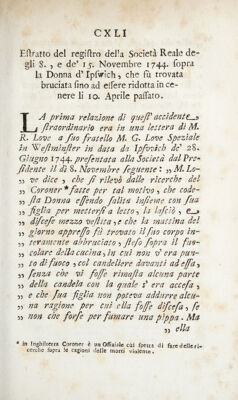 CXLI
Estratto del registro della Società Reale de-
gli 8. , e de' 15. Novembre 1744. sopra
la Donna d' Ipswich , che fù trovata
bruciata sino ad essere ridotta in ce-
nere li 10. Aprile passato.
LA prima relazione di quest' accidente
straordinario era in una lettera di M.
R. Love a suo fratello M. G. Love Speziale
in Westminster in data de Ipswich de' 28.
Giugno 1744. presentata alla Società dal Pre-
sidente il dì 8. Novembre seguente : ,, M. Lo-
,, ve dice , che si rilevò dalle ricerche del
,, Coroner * fatte per tal motivo , che code-
,, sta Donna essendo salita insieme con sua
,, figlia per mettersi a letto, la lasciò , e
,, discese mezzo vestita , e che la mattina del
,, giorno appresso fiè trovato il suo corpo in-
,, teramente abbruciato , steso sopra il fuo-
,, colare della cucina, in cui non v' era pun-
,, to di fuoco , col candelliere davanti ad essa,
,, senza che vi fosse rimasta alcuna parte
,, della candela con la quale s' era accesa ,
,, e che sua figlia non poteva addurre alcu-
,, na ragione per cui ella fosse discesa, se
,, non che forse per fumare una pippa. Ma
,, ella
* in Inghilterra Coroner è un Offiziale cui spetta di fare delle ri-
cerche sopra le cagioni delle morti violente .